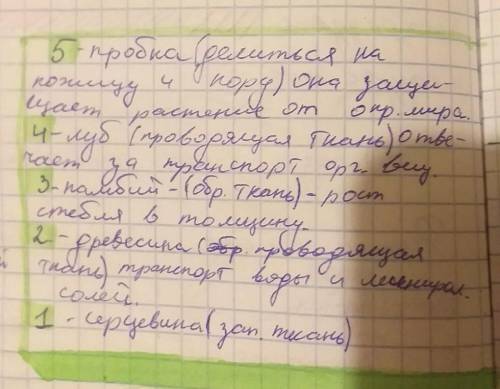 5-пробка (делиться на
кожицу и кору) она защи-
щает растение от окр. мира.
4-луб (проводящая ткань) отве-
чает за транспорт орг. вещ.
3-камбий-(обр. ткань)-рост
стебля в толщину.
2-древесина (проводящая
ткань) транспорт воды и минерал.
солей.
1-серцевина (зап. ткань)